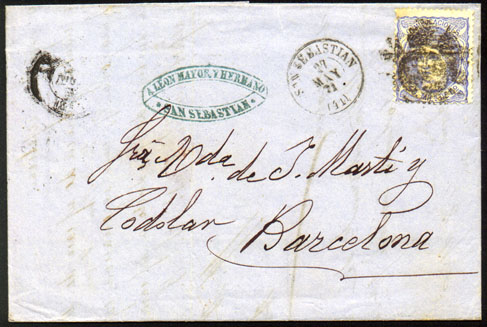 ALLON MAYOR, Y HERMANO
• SAN SEBASTIAN •
SAN SEBASTIAN
27
MAY
71
(41)
Sra. Vda. de J. Martí y
Codolar Barcelona